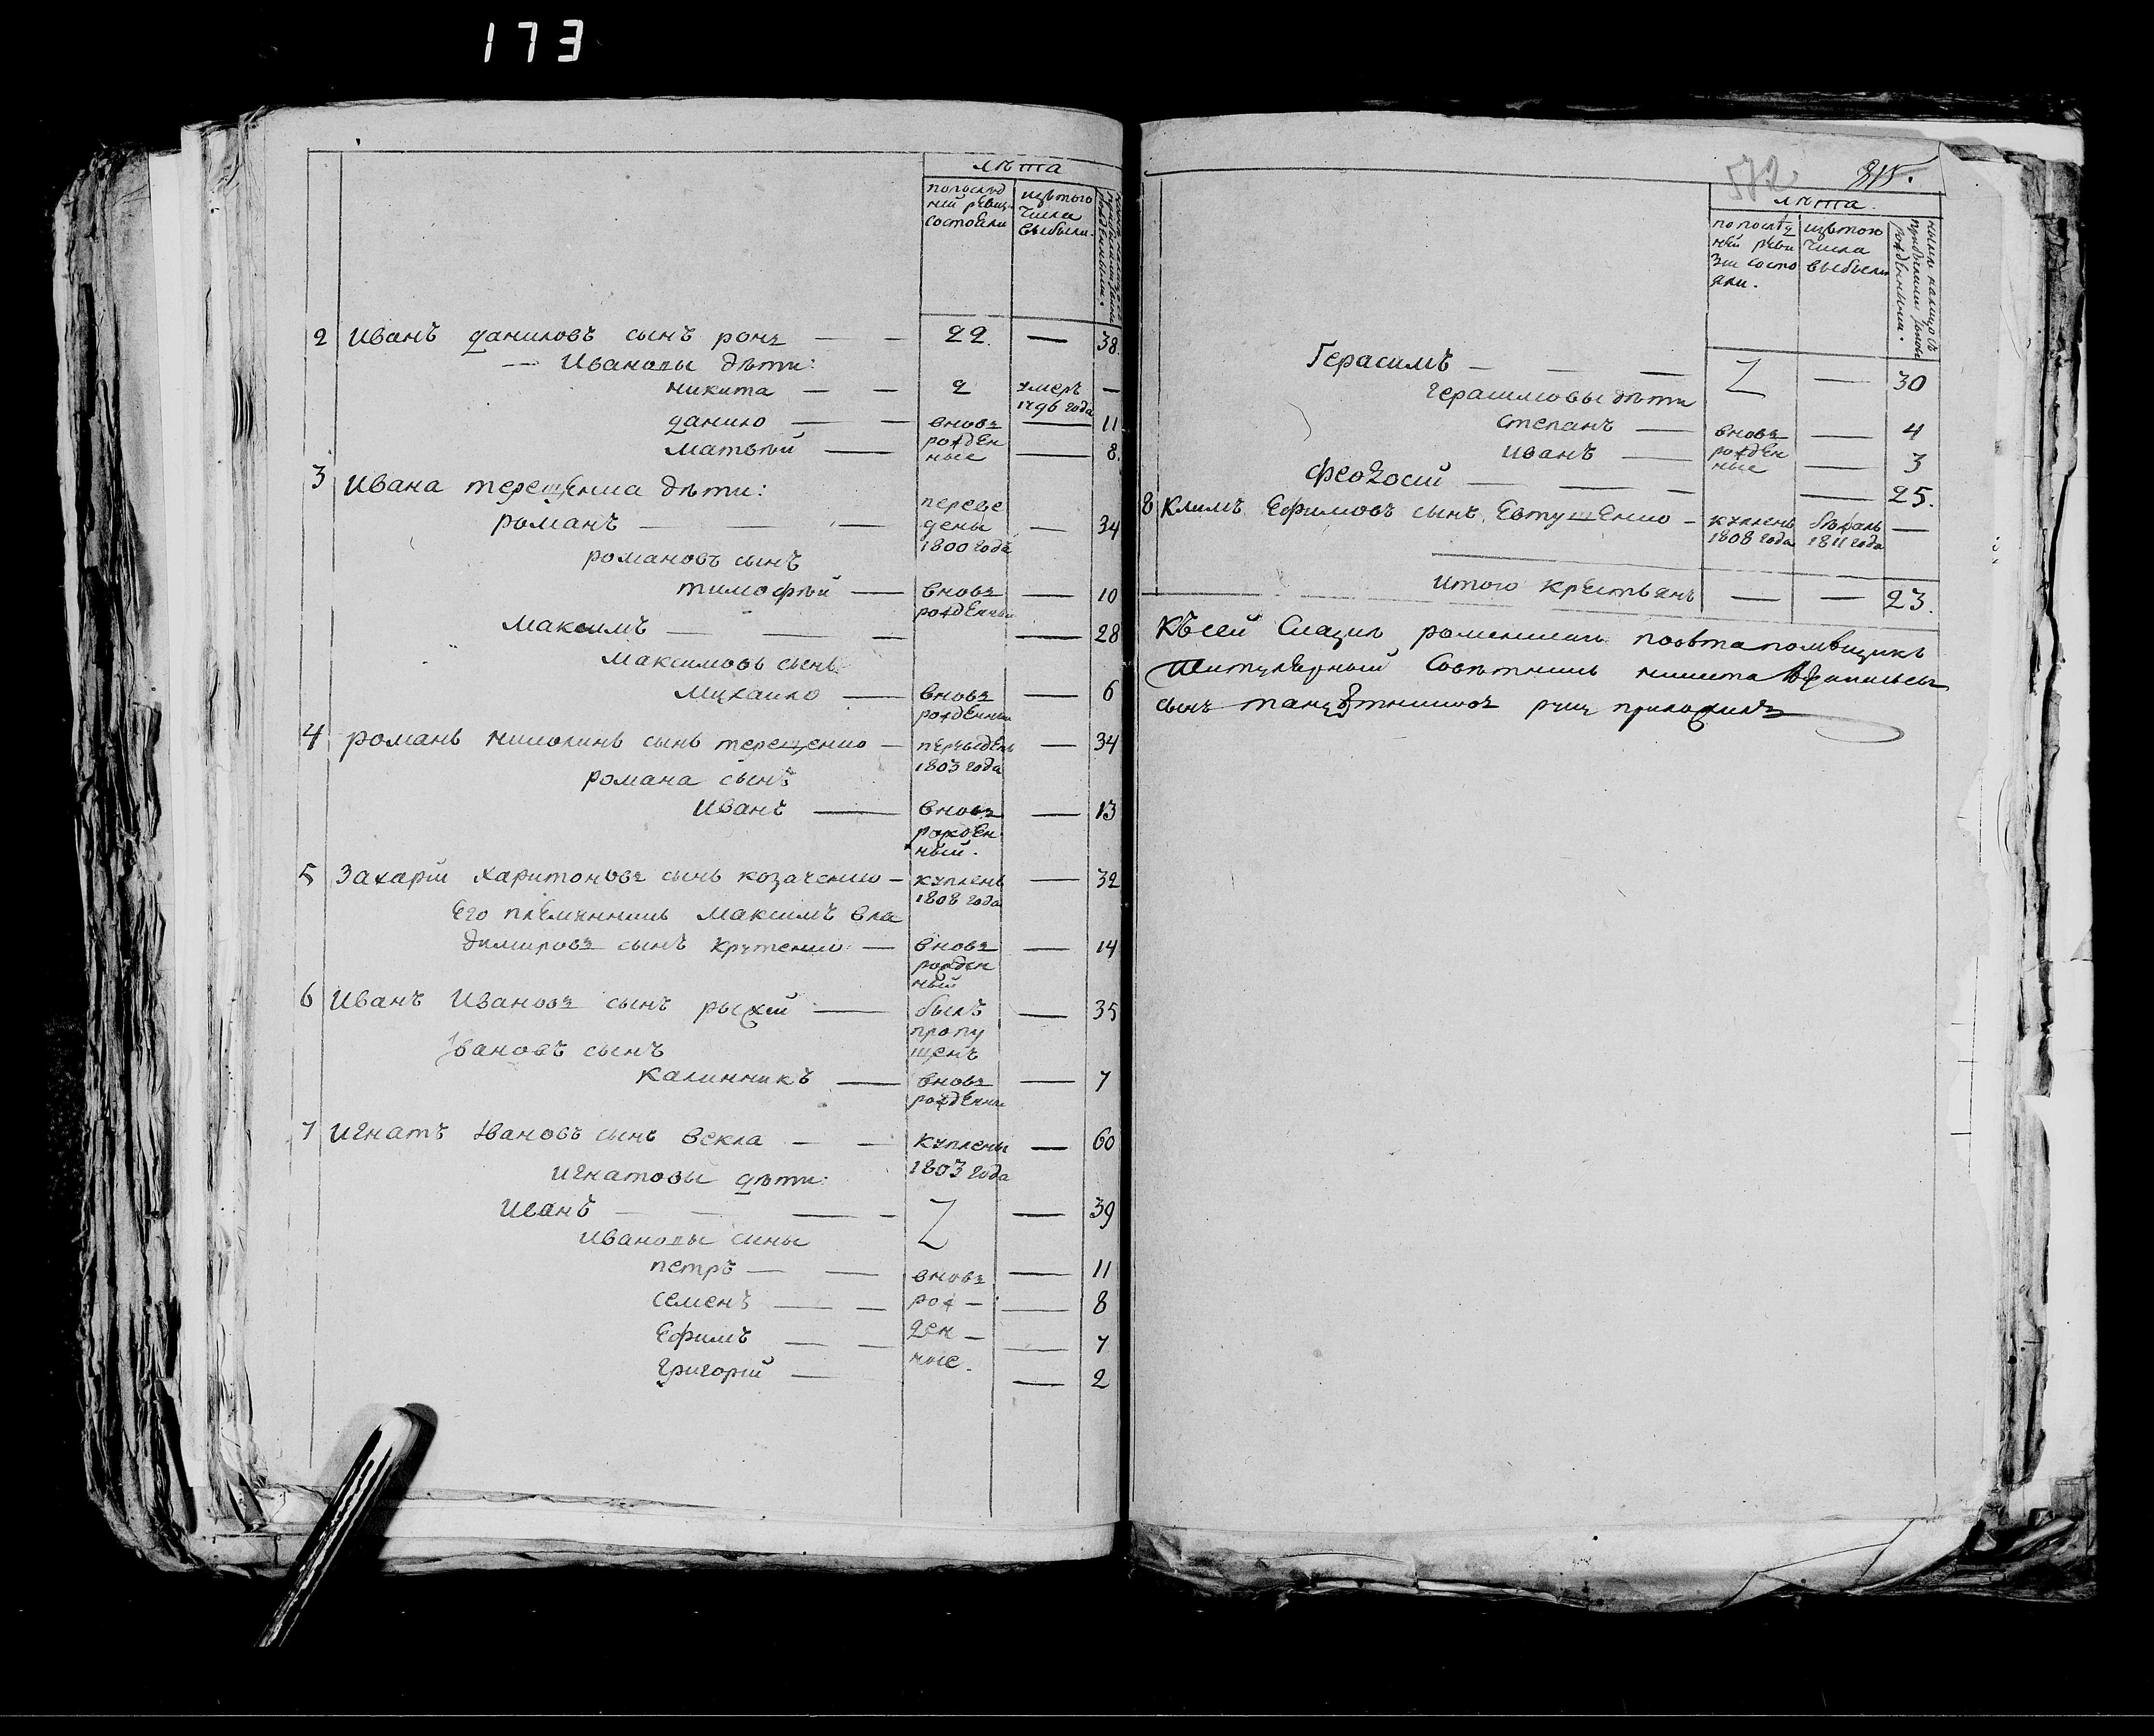 173
лѣта
попослѣд
ней ревиз:
состояли
изътого
числа
выбыли.
2 Иванъ даниловъ сынъ ронъ — — 22. — 38.
— Ивановы дѣти:
никита — — 2 умеръ —
1796 года
данило — — вновь — 11
рожден
матвѣй — ные — 8.
3 Ивана терещенка дѣти:
переве
романъ — — дены — 34
1800 года
романовъ сынъ
тимофѣй — вновь — 10
рожденный
максимъ — — — — 28
максимовъ сынъ
михайло — вновь — 6
рожденный
4 романъ николинъ сынъ терещенко — переведенъ — 34
1803 года
романа сынъ
иванъ — вновь — 13
рожден
ный.
5 Захарiй харитоновъ сынъ козаченко — купленъ — 32
1808 года
Его племенникъ максимъ вла
димировъ сынъ крутенко — вновь — 14
рожден
ный
6 Иванъ Ивановъ сынъ рыжiй — былъ — 35
пропу
щенъ
Ивановъ сынъ
калинникъ — вновь — 7
рожденны
7 Игнатъ Ивановъ сынъ векла — — куплены — 60
1803 года
игнатовы дѣти:
Иванъ — — — — — 39
Ивановы сины
петръ — — вновь — 11
семенъ — — рож — — 8
Ефимъ — — ден — — 7
ные.
григорiй — — 2
572 815.
лѣта.
попослѣд
ней реви
зiи состо
яли.
изътого
числа
выбыли
Герасимъ — — — — 30
герасимовы дѣти
степанъ — вновь — 4
рожден
иванъ — ные — 3
феодосiй — — — — 25.
8 Климъ Ефимовъ сынъ Евтушенко — купленъ бѣжалъ —
1808 года 1811 года
итого крестьянъ — — 23.
Къ сей Сказкѣ роменского повѣта помѣщикъ
Титулярный Совѣтникъ никита
сынъ руку приложилъ